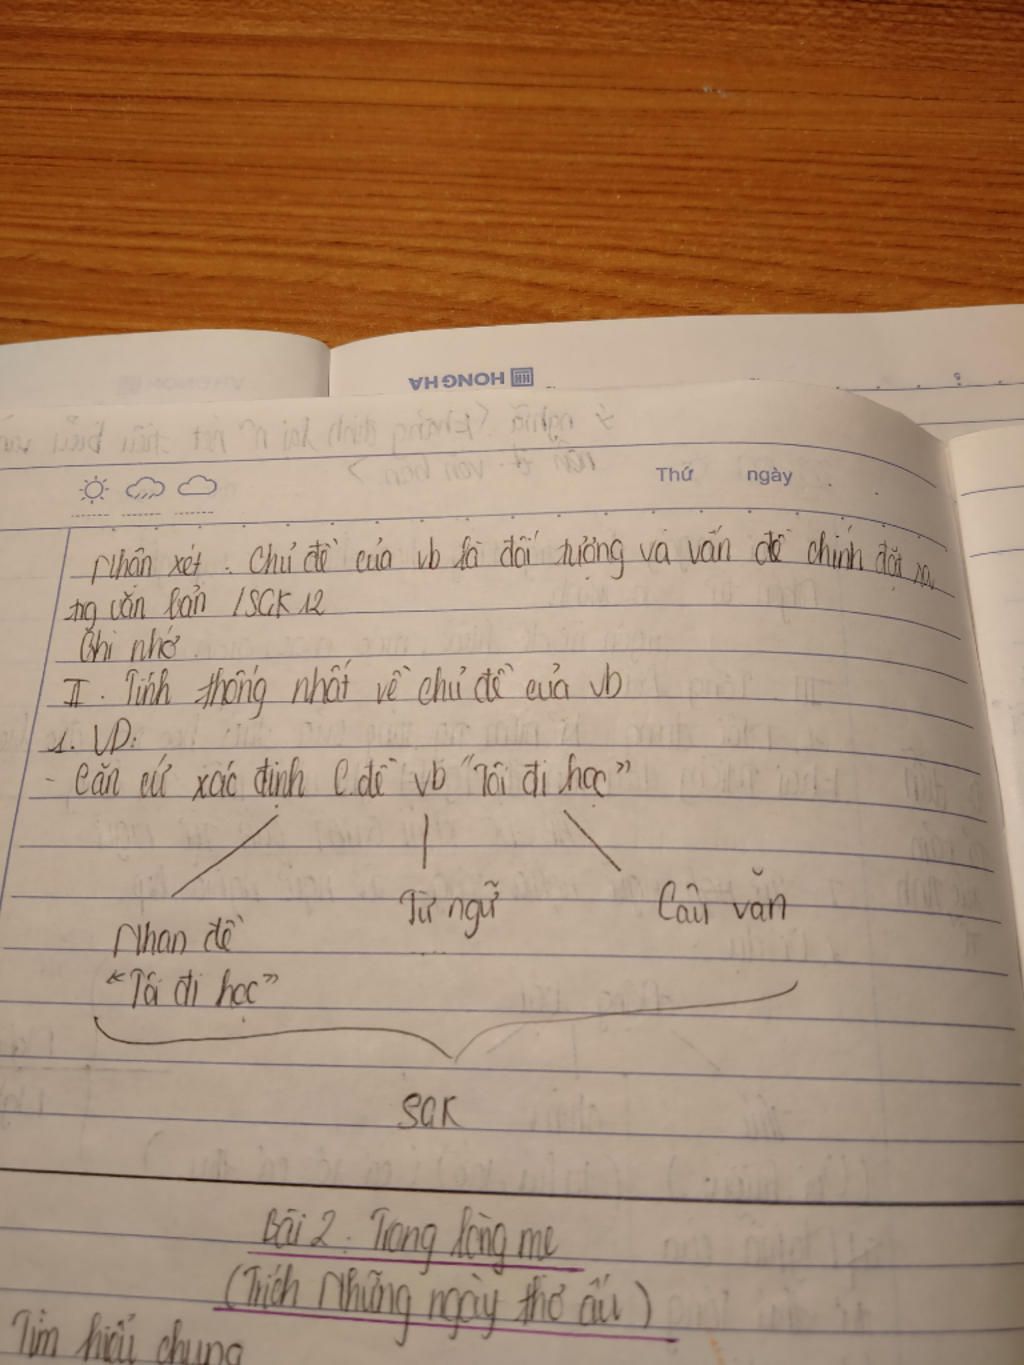 HONG HA
Thứ ngày
Nhận xét : Chủ đề của vb là đối tượng và vấn đề chính đặt ra
tng văn bản /SGK 12
Ghi nhớ
II. Tính thống nhất về chủ đề của vb
1. VD:
- Căn cứ xác định C.đề vb "Tôi đi học"
Nhan đề Từ ngữ Câu văn
"Tôi đi học"
SGK
Bài 2 : Trong lòng mẹ
(Trích Những ngày thơ ấu)
Tìm hiểu chung